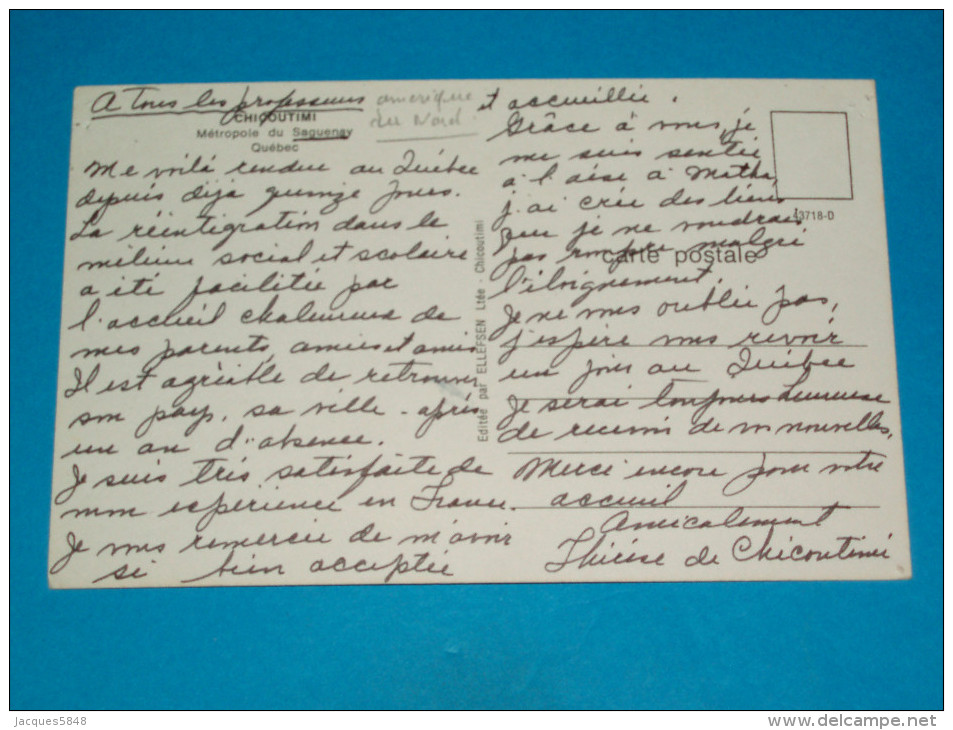 A tous les professeurs
amerique
du Nord
CHICOUTIMI
Métropole du Saguenay
Québec
Me voilà rendue au Québec
depuis déjà quinze jours.
La réintégration dans le
milieu social et scolaire
a été facilitée par
l'accueil chaleureux de
mes parents, amies et amis
Il est agréable de retrouver
son pays, sa ville - après
un an d'absence.
Je suis très satisfaite de
mon expérience en France.
Je vous remercie de m'avoir
si bien acceptée
et accueillie.
Grâce à vous, je
me suis sentie
à l'aise à Matha,
j'ai crée des liens
que je ne voudrais
pas rompre malgré
l'éloignement.
Je ne vous oublie pas,
j'espère vous revoir
un jour au Québec
Je serai toujours heureuse
de recevoir de vos nouvelles.
Merci encore pour votre
accueil
Amicalement
Thérèse de Chicoutimi
Editée par ELLEFSEN Ltée - Chicoutimi
43718-D
carte postale
Jacques5848
www.delcampe.net